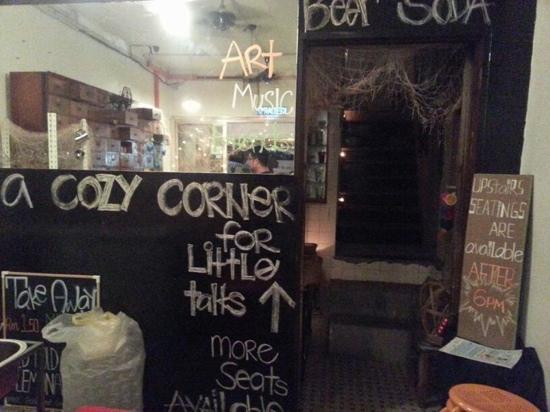 Beer SODA
Art
Music
a COZY CORNER
for
Little
talks
more
Seats
Available
UPstairs
SEATINGS
ARE
available
AFTER
6PM
Take Away
Rm 1.50